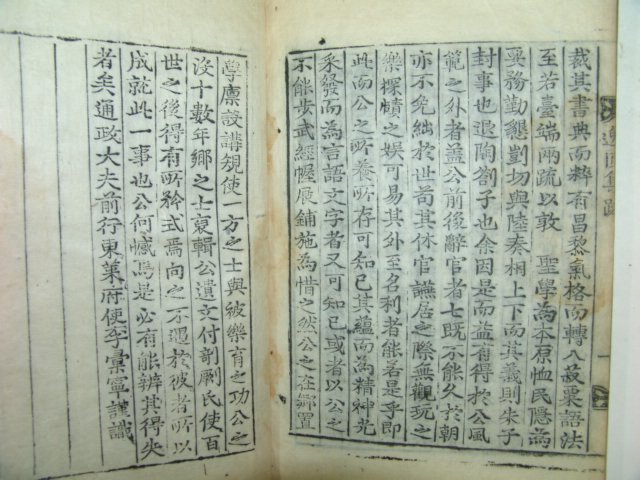 裁其書典而粹有昌黎氣格而轉入菽粟語法
至若臺端兩疏以敦 聖學爲本原恤民隱爲
要務勤懇剴切與陸奏相上下而其義則朱子
封事也退陶劄子也余因是而益有得於公風
範之外者益公前後辭官者七旣不能久於朝
亦不免絀於世苟其休官讌居之際無觀玩之
樂探賾之娛可易其外至名利者能若是乎卽
此而公之所養所存可知已其蘊而爲精神光
采發而爲言語文字者又可知已或者以公之
不能步武經幄展鋪施爲惜之然公之在鄕置
學廩設講規使一方之士與被樂育之功公之
沒十數年鄕之士裒輯公遺文付剞劂氏使百
世之後得有所矜式焉向之不遇於彼者所以
成就此一事也公何憾焉是必有能辨其得失
者矣通政大夫前行東萊府使李彙寧謹識